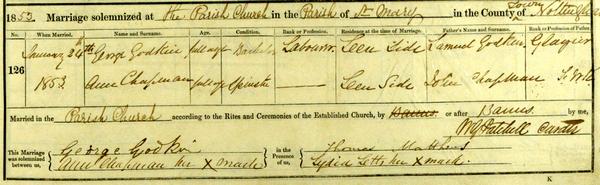 1853 Marriage solemnized at the Parish Church in the Parish of St Mary in the County of Town Nottingham
No. When Married. Name and Surname. Age. Condition. Rank or Profession. Residence at the time of Marriage. Father's Name and Surname. Rank or Profession of Father.
126 January 24th George Godkin full age Bachelor Labourer Leen Side Samuel Godkin Glazier
1853 Ann Chapman full age Spinster Leen Side John Chapman
Married in the Parish Church according to the Rites and Ceremonies of the Established Church, by Banns or after Banns by me,
Curate
This Marriage was solemnized between us, George Godkin
Ann Chapman her X mark
in the Presence of us, Thomas Matthews
Lydia Letts her X mark
K